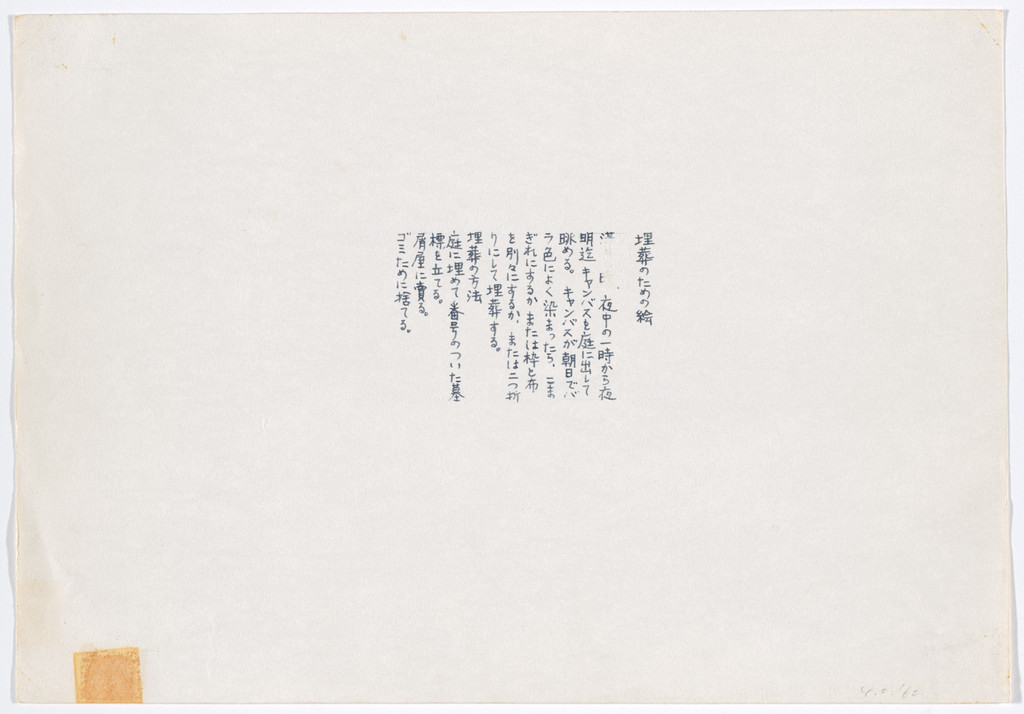 埋葬のための絵
夜中の一時から夜
明迄 キャンバスを庭に出して
眺める。 キャンバスが朝日でバ
ラ色によく染まったら、こま
ぎれにするか または枠と布
を別々にするか、または二つ折
りにして埋葬する。
埋葬の方法
庭に埋めて番号のついた墓
標を立てる。
屑屋に賣る。
ゴミために捨てる。
y.o. '62